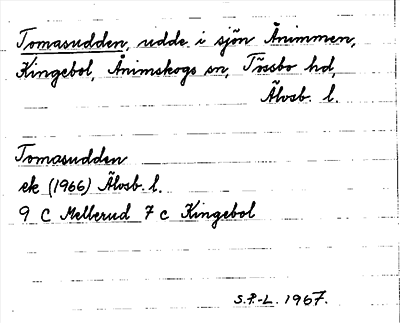 Tomasudden, udde i sjön Ånimmen,
Kingebol, Ånimskogs sn, Tössbo hd,
Älvsb. l.
Tomasudden
ek (1966) Älvsb. l.
9 C Mellerud 7 c Kingebol
S.P.-L. 1967.